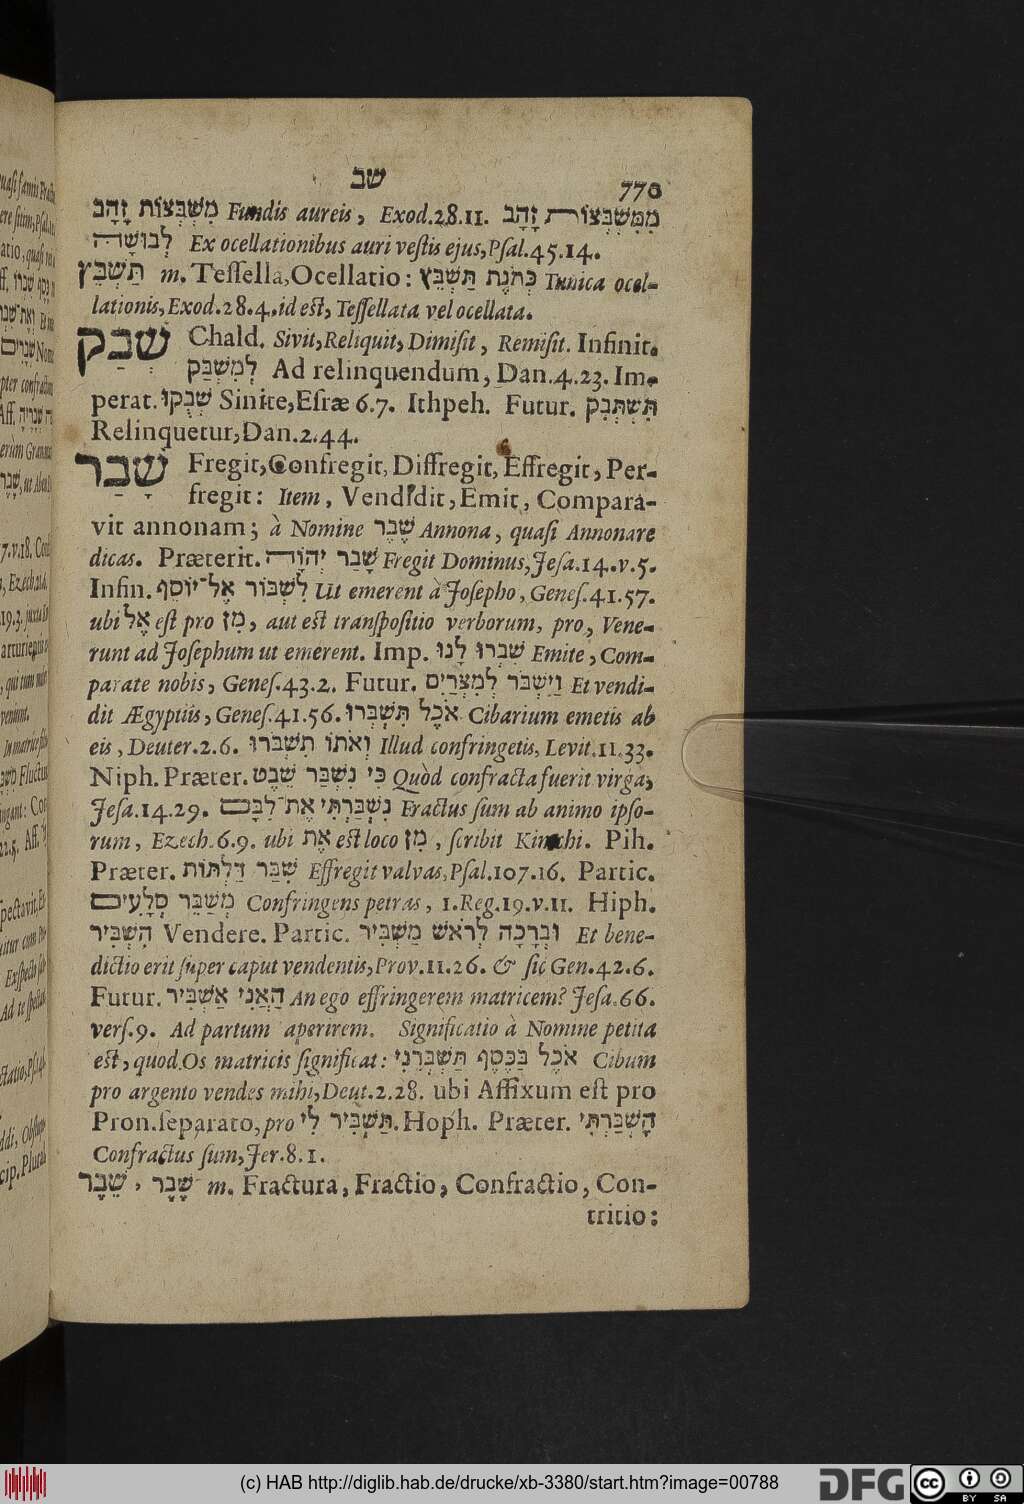 שב
770
מִשְׁבְּצוֹת זָהָב Fundis aureis, Exod.28.11. מִמִּשְׁבְּצוֹת זָהָב
לְבוּשָׁהּ Ex ocellationibus auri veſtis ejus, Pſal.45.14.
תַּשְׁבֵּץ m. Teſſella, Ocellatio: כְּתֹנֶת תַּשְׁבֵּץ Tunica ocel-
lationis, Exod.28.4. id eſt, Teſſellata vel ocellata.
שְׁבַק Chald. Sivit, Reliquit, Dimiſit, Remiſit. Infinit.
לְמִשְׁבַּק Ad relinquendum, Dan.4.23. Im-
perat. שְׁבֻקוּ Sinite, Eſræ 6.7. Ithpeh. Futur. תִּשְׁתְּבִק
Relinquetur, Dan.2.44.
שָׁבַר Fregit, Confregit, Diffregit, Effregit, Per-
fregit: Item, Vendidit, Emit, Compara-
vit annonam; à Nomine שֶׁבֶר Annona, quaſi Annonare
dicas. Præterit. שָׁבַר יְהוָֹה Fregit Dominus, Jeſa.14.v.5.
Infin. לִשְׁבּוֹר אֶל־יוֹסֵף Ut emerent à Joſepho, Geneſ.41.57.
ubi אֶל eſt pro מִן, aut eſt tranſpoſitio verborum, pro, Vene-
runt ad Joſephum ut emerent. Imp. שִׁבְרוּ לָנוּ Emite, Com-
parate nobis, Geneſ.43.2. Futur. וַיִּשְׁבֹּר לְמִצְרַיִם Et vendi-
dit Ægyptiis, Geneſ.41.56. אֹכֶל תִּשְׁבְּרוּ Cibarium emetis ab
eis, Deuter.2.6. וְאֹתוֹ תִשְׁבֹּרוּ Illud confringetis, Levit.11.33.
Niph. Præter. כִּי נִשְׁבַּר שֵׁבֶט Quòd confracta fuerit virga,
Jeſa.14.29. נִשְׁבַּרְתִּי אֶת־לִבָּם Fractus ſum ab animo ipſo-
rum, Ezech.6.9. ubi אֶת eſt loco מִן, ſcribit Kimchi. Pih.
Præter. שִׁבַּר דַּלְתוֹת Effregit valvas, Pſal.107.16. Partic.
מְשַׁבֵּר סְלָעִים Confringens petras, 1.Reg.19.v.11. Hiph.
הִשְׁבִּיר Vendere. Partic. וּבְרָכָה לְרֹאשׁ מַשְׁבִּיר Et bene-
dictio erit ſuper caput vendentis, Prov.11.26. & ſic Gen.42.6.
Futur. הַאֲנִי אַשְׁבִּיר An ego effringerem matricem? Jeſa.66.
verſ.9. Ad partum aperirem. Significatio à Nomine petita
eſt, quod Os matricis ſignificat: אֹכֶל בַּכֶּסֶף תַּשְׁבְּרֵנִי Cibum
pro argento vendes mihi, Deut.2.28. ubi Affixum eſt pro
Pron. ſeparato, pro תַּשְׁבִּיר לִי. Hoph. Præter. הָשְׁבַּרְתִּי
Confractus ſum, Jer.8.1.
שֶׁבֶר, שֵׁבֶר m. Fractura, Fractio, Confractio, Con-
tritio:
(c) HAB http://diglib.hab.de/drucke/xb-3380/start.htm?image=00788
DFG
cc BY SA